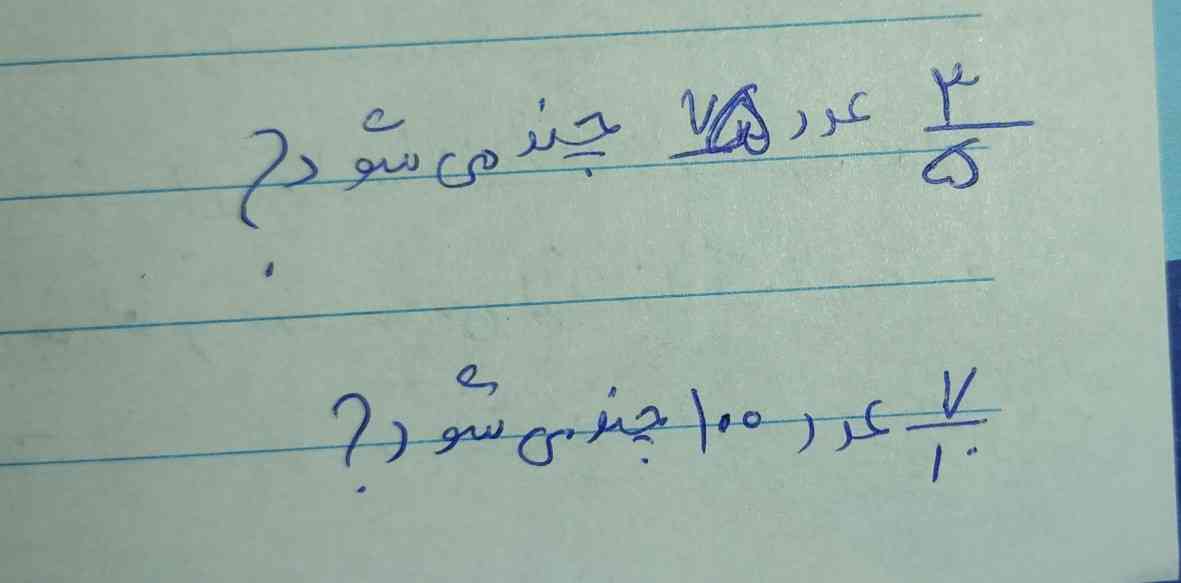 ۳/۵ عدد ۷۵ چند می شود؟
۷/۱۰ عدد ۱۰۰ چند می شود؟